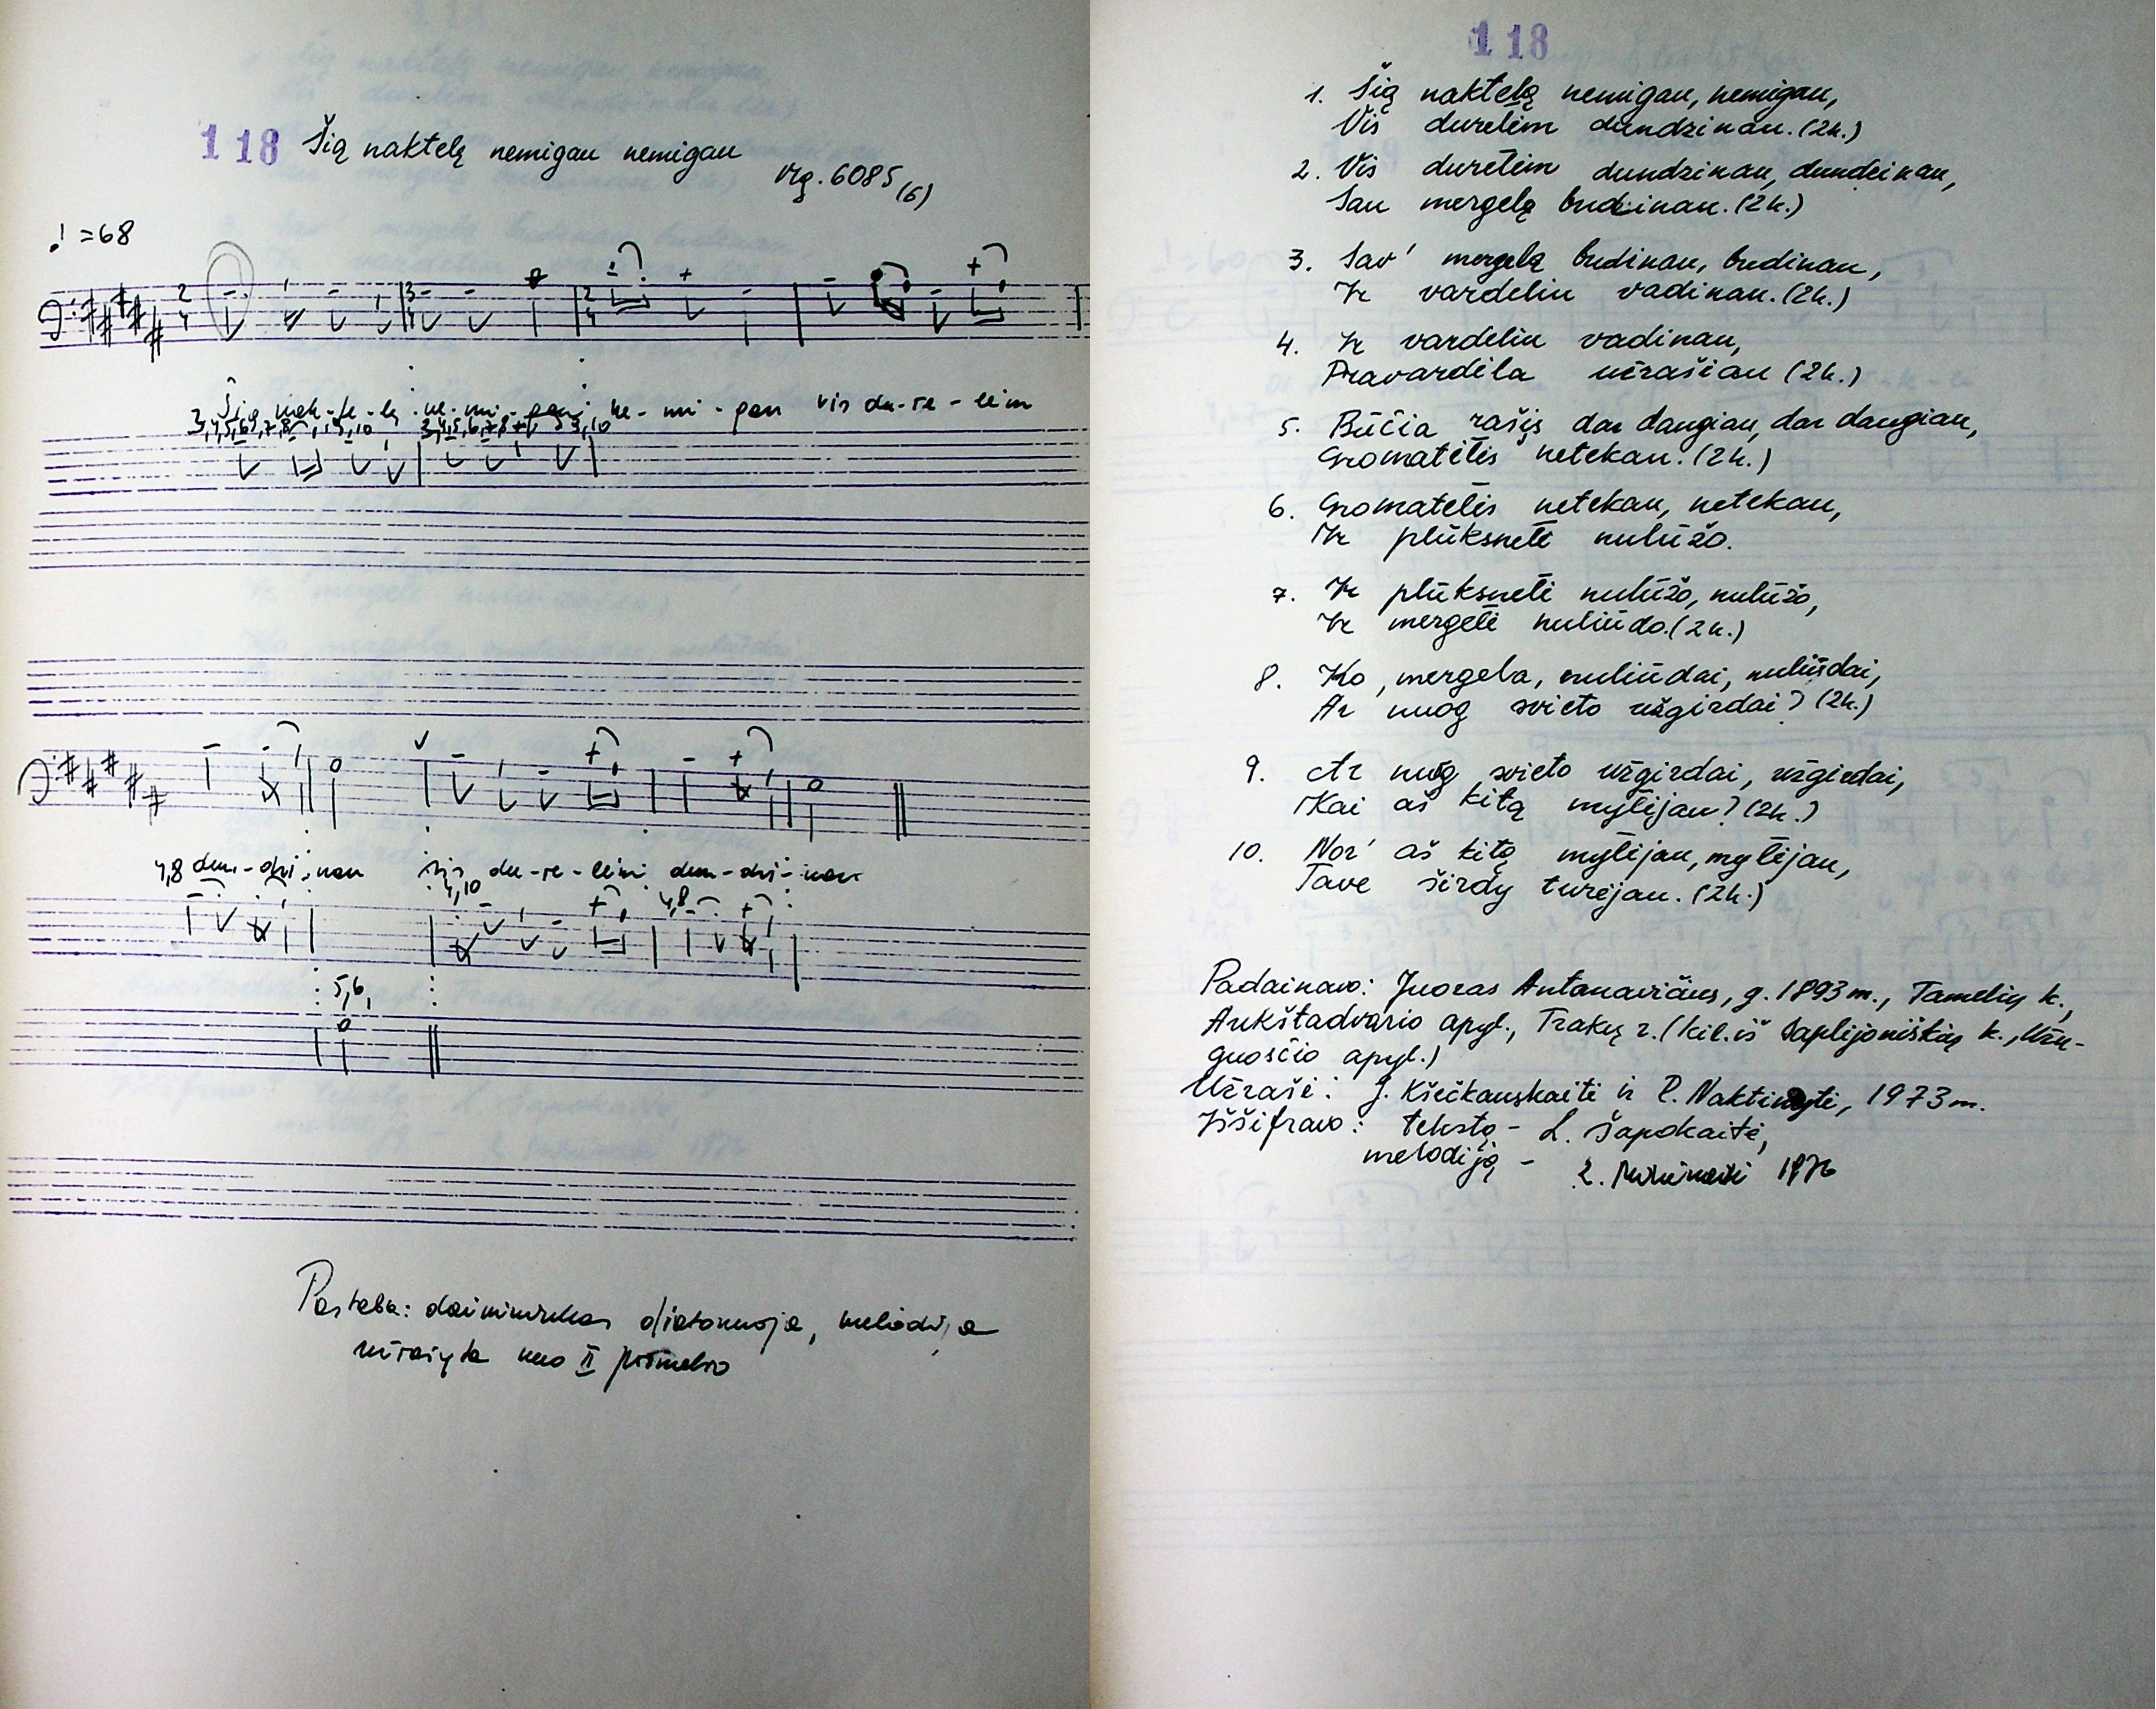 118 Šią naktelę nemigau nemigau
Vrg. 6085 (6)
♩ = 68
2 4 3 4 2 4
Šią nak-te-lę ne-mi-gau, ne-mi-gau vis du-re-lėm
4,8 dun-dzi-nau vis du-re-lėm dun-dzi-nau
4,10 4,8
5,6,
Pastaba: dainininkas , melodija
užrašyta nuo II posmelio
118
1. Šią naktelę nemigau, nemigau,
Vis durelėm dundzinau. (2k.)
2. Vis durelėm dundzinau, dundzinau,
Sau mergelę budzinau. (2k.)
3. Sav' mergelę budinau, budinau,
Ir vardeliu vadinau. (2k.)
4. Ir vardeliu vadinau,
Pravardėla užrašiau (2k.)
5. Būčia rašįs dar daugiau, dar daugiau,
Gromatėlės netekau. (2k.)
6. Gromatėlės netekau, netekau,
Ir plūksnelė nulūžo.
7. Ir plūksnelė nulūžo, nulūžo,
Ir mergelė nuliūdo. (2k.)
8. Ko, mergela, nuliūdai, nuliūdai,
Ar nuog svieto užgirdai? (2k.)
9. Ar nuog svieto užgirdai, užgirdai,
Kai aš kitą mylėjau? (2k.)
10. Nor' aš kitą mylėjau, mylėjau,
Tave širdy turėjau. (2k.)
Padainavo: Juozas Antanavičius, g. 1893 m., Tamelių k.,
Aukštadvario apyl., Trakų r. (kil. iš Saplijoniškių k., Užu-
guosčio apyl.)
Užrašė: J. Kšečkauskaitė ir P. Naktinytė, 1973 m.
Iššifravo: tekstą - L. Šapokaitė,
melodiją - 1976